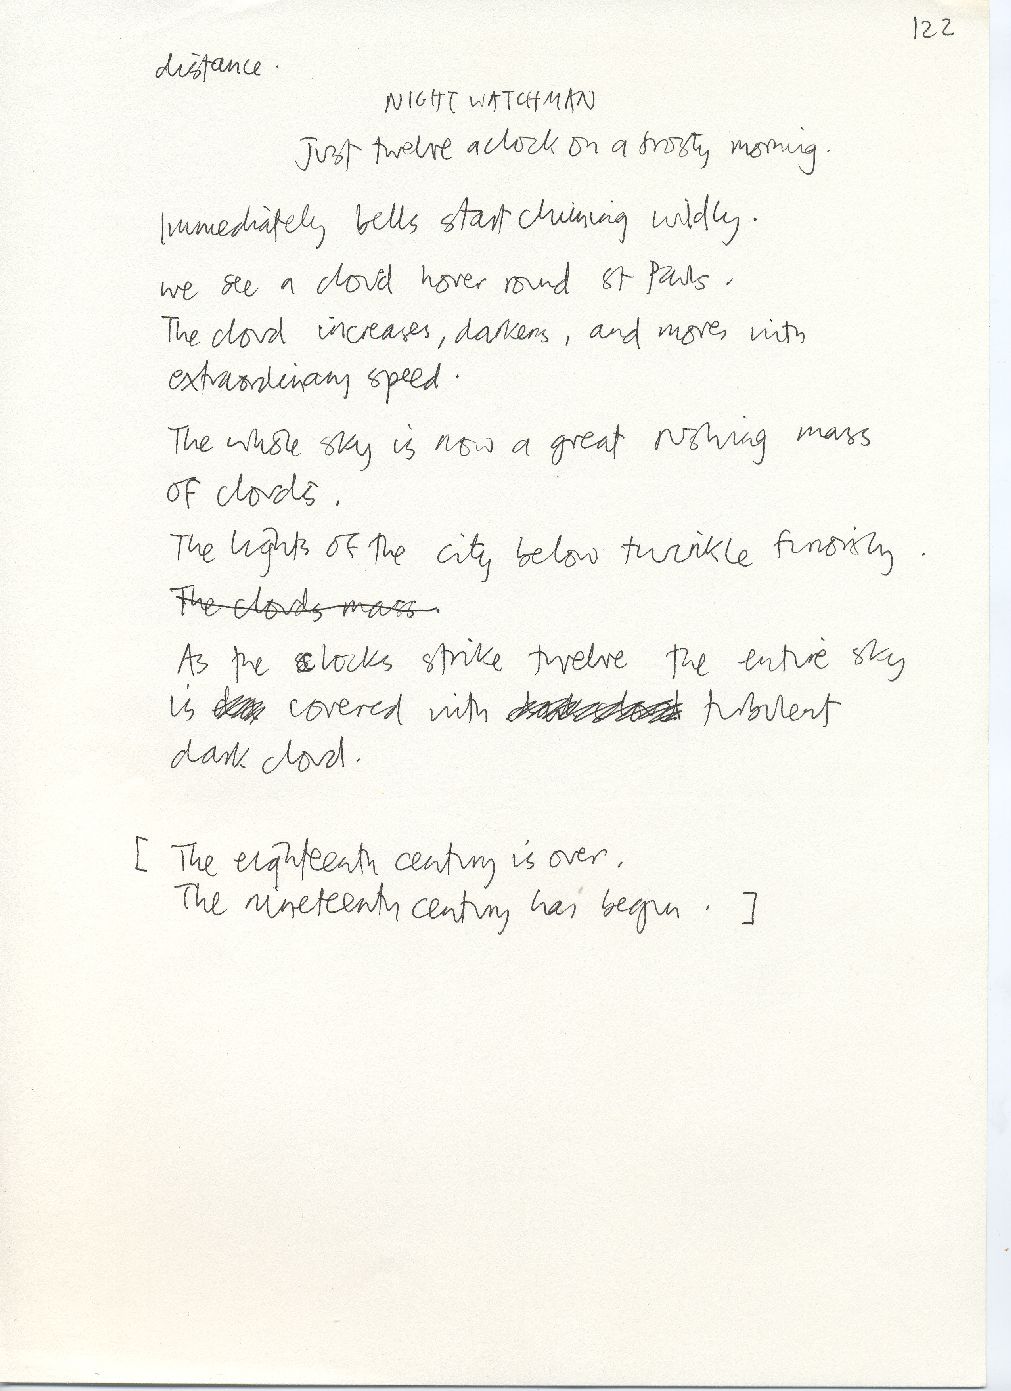 122
distance.
NIGHT WATCHMAN
Just twelve aclock on a frosty morning.
Immediately bells start chiming wildly.
we see a cloud hover round St Pauls.
The cloud increases, darkens, and moves with
extraordinary speed.
The whole sky is now a great rushing mass
of clouds.
The lights of the city below twinkle furiously.
The clouds mass.
As the clocks strike twelve the entire sky
is covered with turbulent
dark cloud.
[ The eighteenth century is over.
The nineteenth century has begun. ]